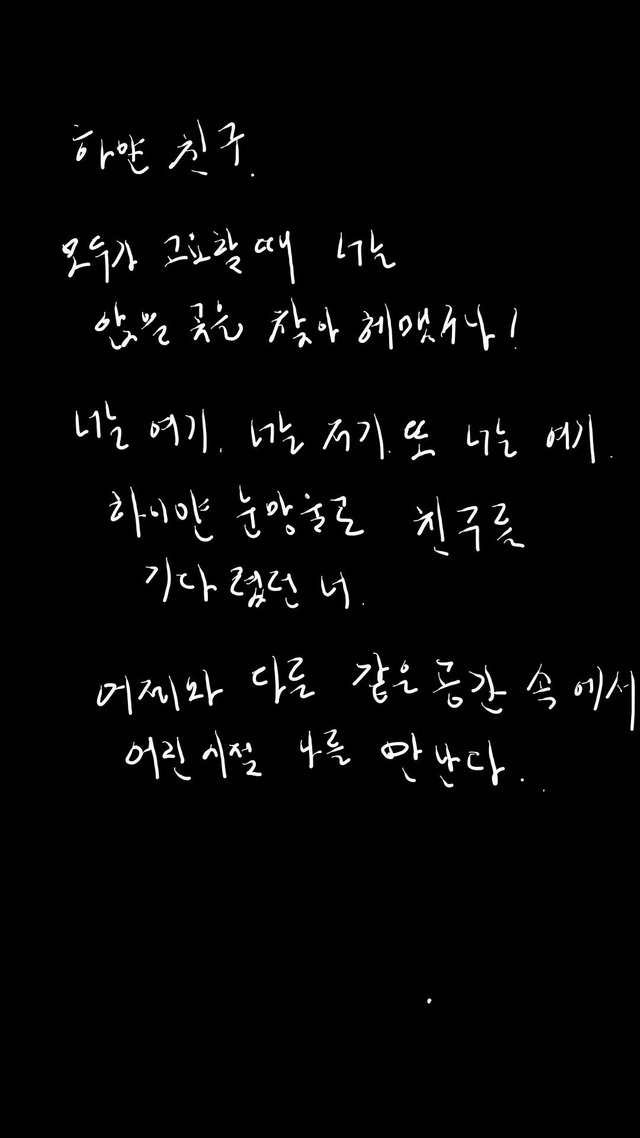 하얀 친구.
모두가 고요할때 너는
앉을 곳을 찾아 헤맸구나!
너는 여기. 너는 저기. 또 너는 여기.
하이얀 눈망울로 친구를
기다렸던 너.
어제와 다를 같은 공간 속에서
어린시절 나를 만난다.